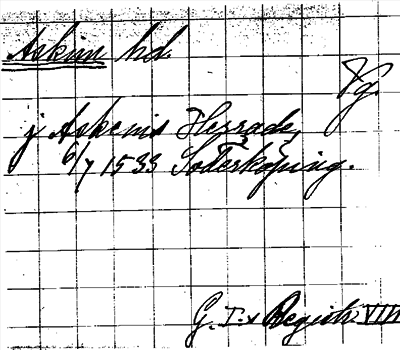 Askim hd.
Vg.
j Askenis Herrade,
6/7 1533 Söderköping.
G. I.s Registr. VIII